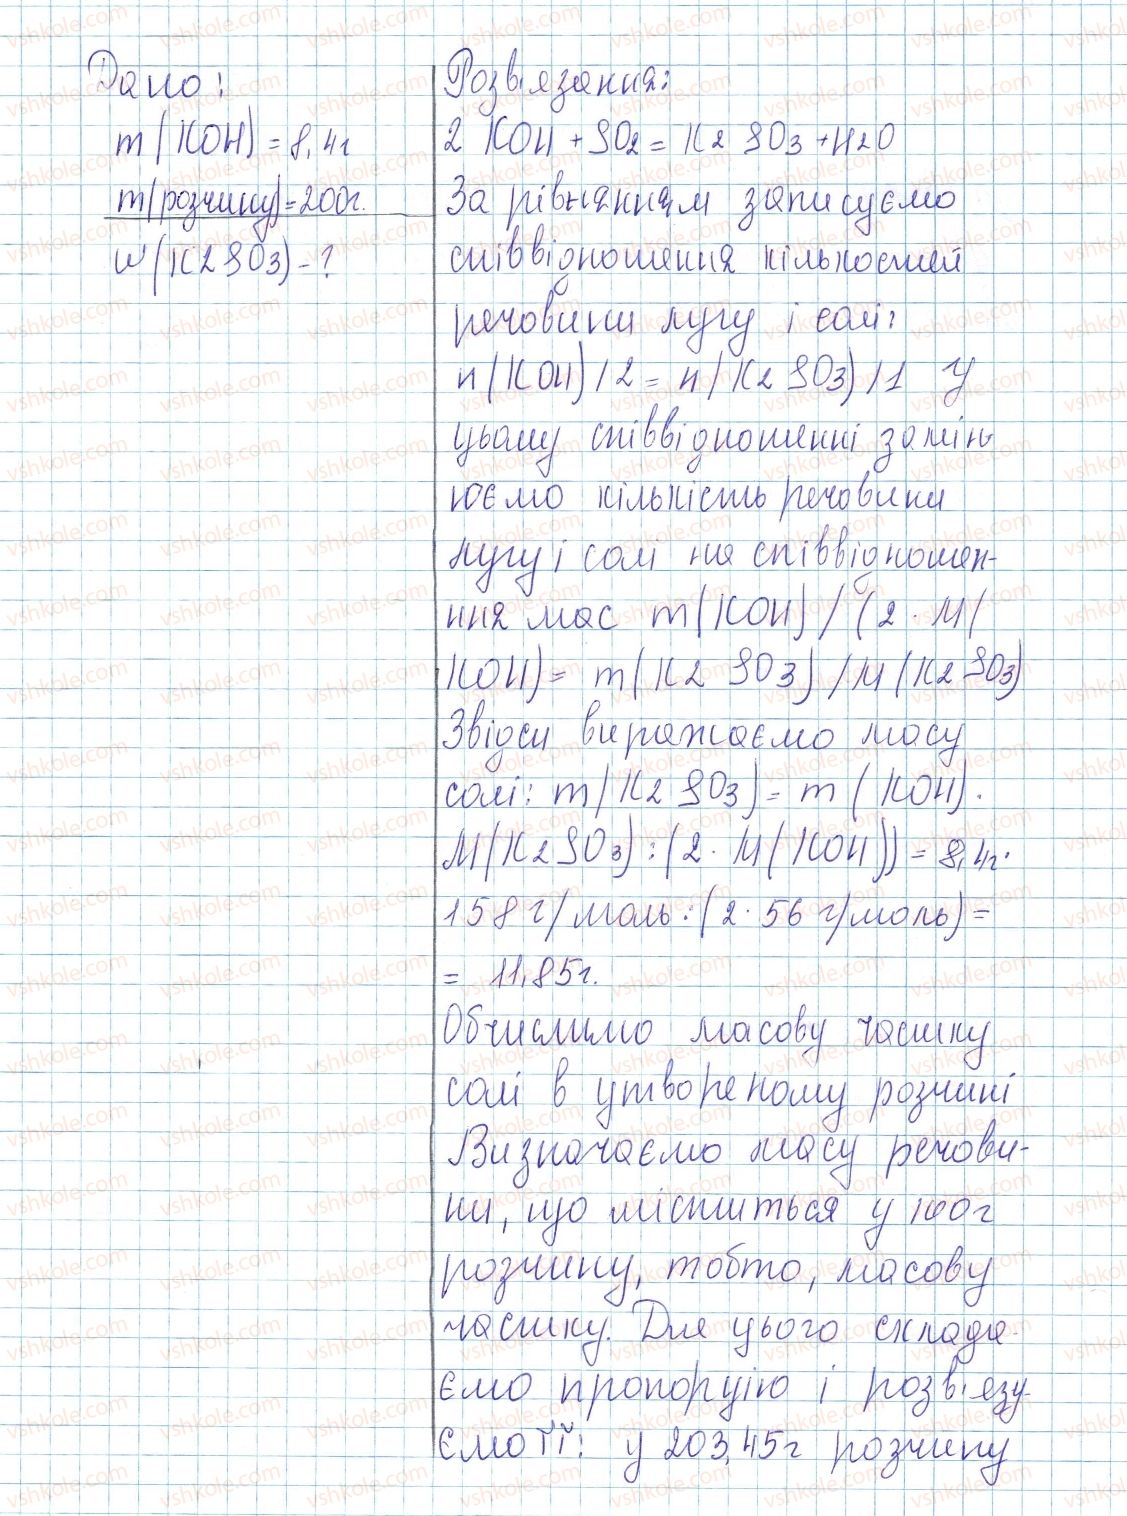 Дано:
m(KOH)=8,4г
m(розчину)=200г.
w(K2SO3)-?
Розв'язання:
2 KOH + SO2 = K2 SO3 + H2O
За рівнянням записуємо
співвідношення кількостей
речовини лугу і солі:
n(KOH)/2 = n(K2 SO3)/1 У
цьому співвідношенні замін-
юємо кількість речовини
лугу і солі на співвідношен-
ння мас m(KOH)/(2·M(
KOH)= m(K2 SO3)/M(K2 SO3)
Звідси виражаємо масу
солі: m(K2 SO3)= m (KOH)·
M(K2SO3):(2·M(KOH))=8,4г·
158г/моль:(2·56г/моль)=
= 11,85г.
Обчислимо масову частку
солі в утвореному розчині
Визначаємо масу речови-
ни, що міститься у 100г
розчину, тобто, масову
частку. Для цього склада-
ємо пропорцію і розв'язу-
ємо її: у 203,45г розчину
vshkole.com